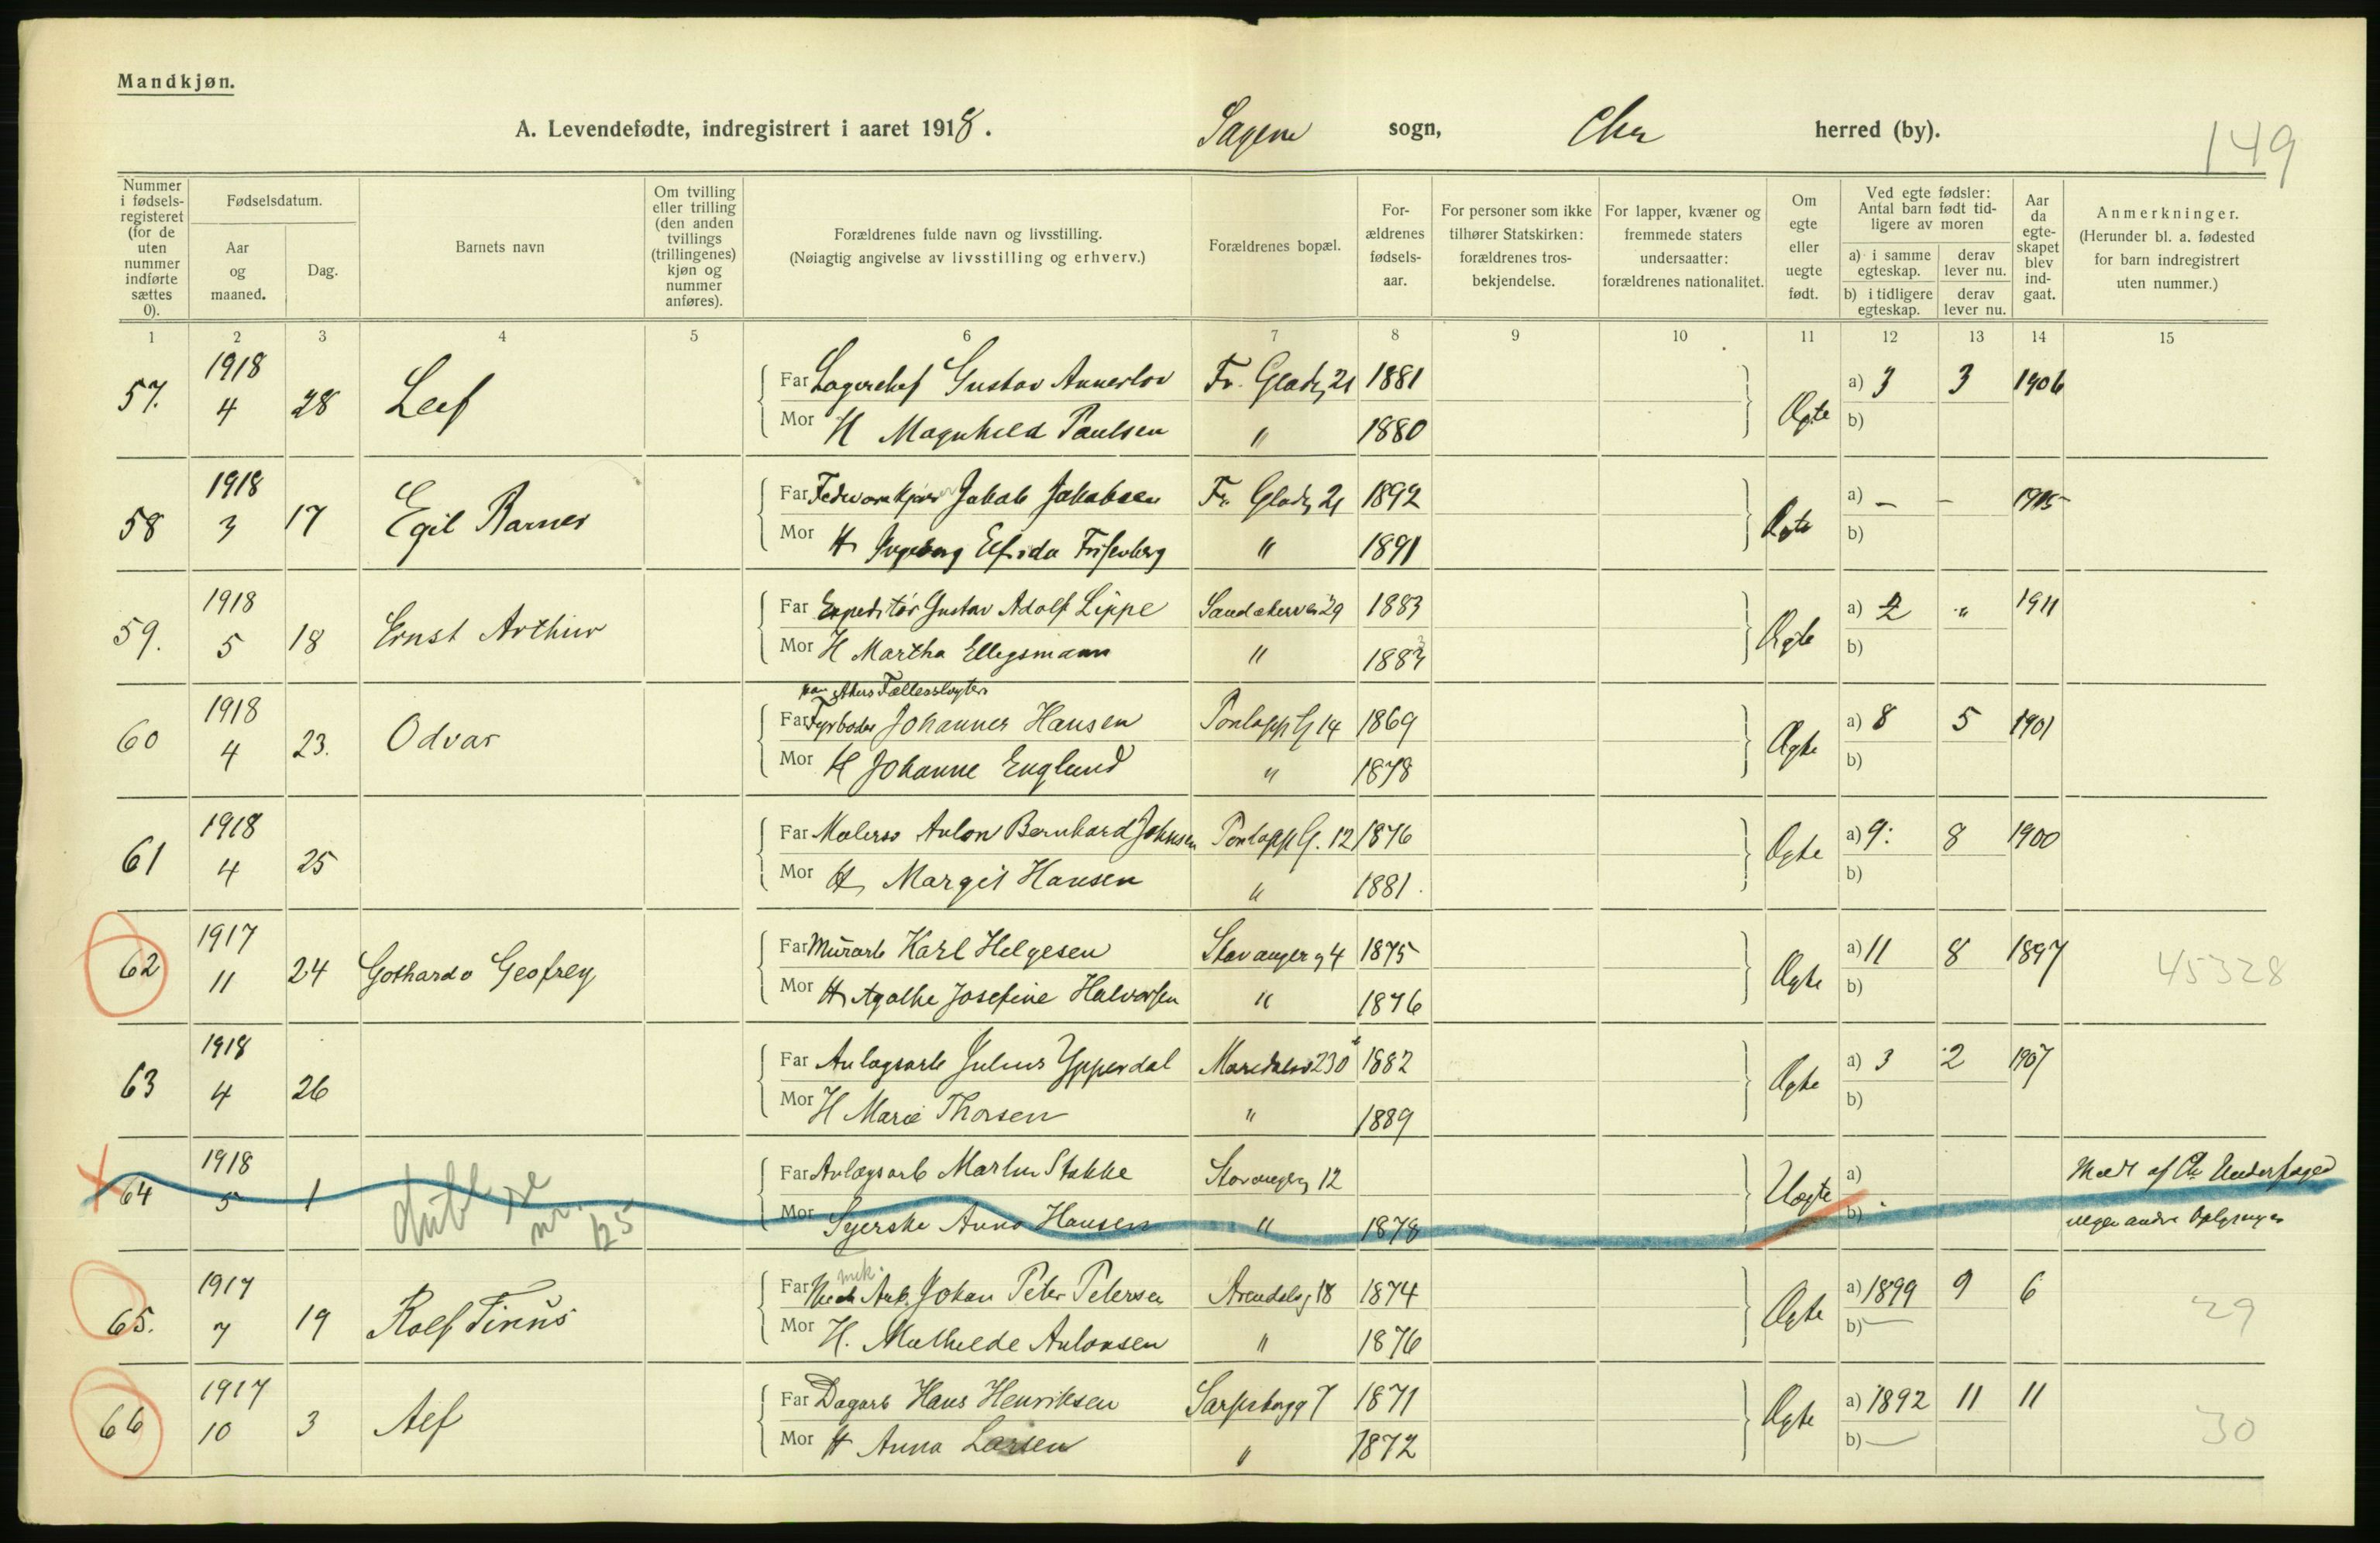 Mandkjøn.
A. Levendefødte, indregistrert i aaret 1918. Sagene sogn, Chra herred (by).
149
Nummer i fødsels-registeret (for de uten nummer indførte sættes 0).
Fødselsdatum.
Aar og maaned.
Dag.
Barnets navn
Om tvilling eller trilling (den anden tvillings (trillingenes) kjøn og nummer anføres).
Forældrenes fulde navn og livsstilling.
(Nøiagtig angivelse av livsstilling og erhverv.)
Forældrenes bopæl.
For-ældrenes fødsels-aar.
For personer som ikke tilhører Statskirken: forældrenes tros-bekjendelse.
For lapper, kvæner og fremmede staters undersaatter: forældrenes nationalitet.
Om egte eller uegte født.
Ved egte fødsler: Antal barn født tid-ligere av moren
a) i samme egteskap. derav lever nu.
b) i tidligere egteskap. derav lever nu.
Aar da egte-skapet blev ind-gaat.
Anmerkninger.
(Herunder bl. a. fødested for barn indregistrert uten nummer.)
1 2 3 4 5 6 7 8 9 10 11 12 13 14 15
57. 1918 4 28 Leif
Far Lagerchef Gustav Fr. Gladsg 21 1881 Ægte a) 3 3 1906
Mor H Magnhild Paulsen " 1880 b)
58 1918 3 17 Egil Rarner
Far Jakob Jakobsen Fr. Gladsg 21 1892 Ægte a) – – 1915
Mor H Ingeborg Elfrida Frisenberg " 1891 b)
59. 1918 5 18 Ernst Arthur
Far Expeditør Gustav Adolf Lippe Sandakervei 29 1883 Ægte a) 2 " 1911
Mor H Martha Ellegsmann " 1883 b)
60 1918 4 23. Odvar
paa Akers Fællesslagteri
Far Fyrbøder Johannes Hansen Pontoppg 14 1869 Ægte a) 8 5 1901
Mor H Johanne Englund " 1878 b)
61 1918 4 25
Far Malersv Anton Bernhard Johnsen Pontoppg. 12 1876 Ægte a) 9 8 1900
Mor H, Margit Hansen " 1881. b)
62 1917 11 24 Gothardo Geofrey
Far Murarb Karl Helgesen Stavangerg 4 1875 Ægte a) 11 8 1897 45328
Mor H, Agathe Josefine Halvorsen " 1876 b)
63 1918 4 26
Far Anlægsarb Julius Ypperdal Maridalsv 230 1882 Ægte a) 3 2 1907
Mor H Marie Thorsen " 1889 b)
64 1918 5 1 dubl se nr. 125
Far Anlægsarb Martin Stakke Stavangerg 12 Uægte a)
Mor Syerske Anna Hansen " 1878 b)
65. 1917 7 19 Rolf Tinius
mek.
Far Arb. Johan Peter Petersen Arendalsg 18 1874 Ægte a) 1899 9 6 29
Mor H. Mathilde Antonsen " 1876 b) –
66 1917 10 3 Alf
Far Dagarb Hans Henriksen Sarpsborgg 7 1871 Ægte a) 1892 11 11 30
Mor H Anna Larsen " 1872 b) –